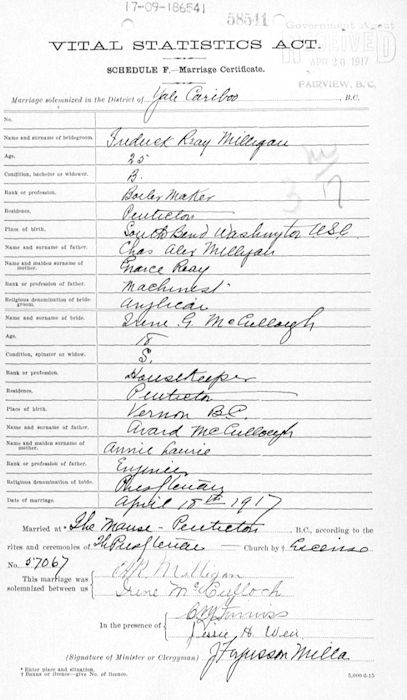 17-09-186541
58541
Government Agent
RECEIVED
APR 20 1917
FAIRVIEW, B.C.
VITAL STATISTICS ACT.
SCHEDULE F.—Marriage Certificate.
Marriage solemnized in the District of Yale Cariboo, B.C.
No.
Name and surname of bridegroom. Fredrick Reay Milligan
Age. 25
Condition, bachelor or widower. B.
Rank or profession. Boiler Maker
Residence. Penticton
Place of birth. South Bend Washington USA
Name and surname of father. Chas Alex Milligan
Name and maiden surname of mother. Reay
Rank or profession of father. Machinest
Religious denomination of bridegroom. Anglican
Name and surname of bride. Irene G. McCullough
Age. 18
Condition, spinster or widow. S.
Rank or profession. Housekeeper
Residence. Penticton
Place of birth. Vernon BC
Name and surname of father. Avard McCullough
Name and maiden surname of mother. Annie Laurie
Rank or profession of father. Engineer
Religious denomination of bride. Presbyterian
Date of marriage. April 18th 1917
Married at * The Manse - Penticton B.C., according to the
rites and ceremonies of The Presbyterian Church by † License
No. 57067
This marriage was solemnized between us
Milligan
Irene McCulloch
In the presence of
Jessie H. Weir
J. Fergusson Millar
(Signature of Minister or Clergyman)
* Enter place and situation.
† Banns or license—give No. of license.
5,000-6-15